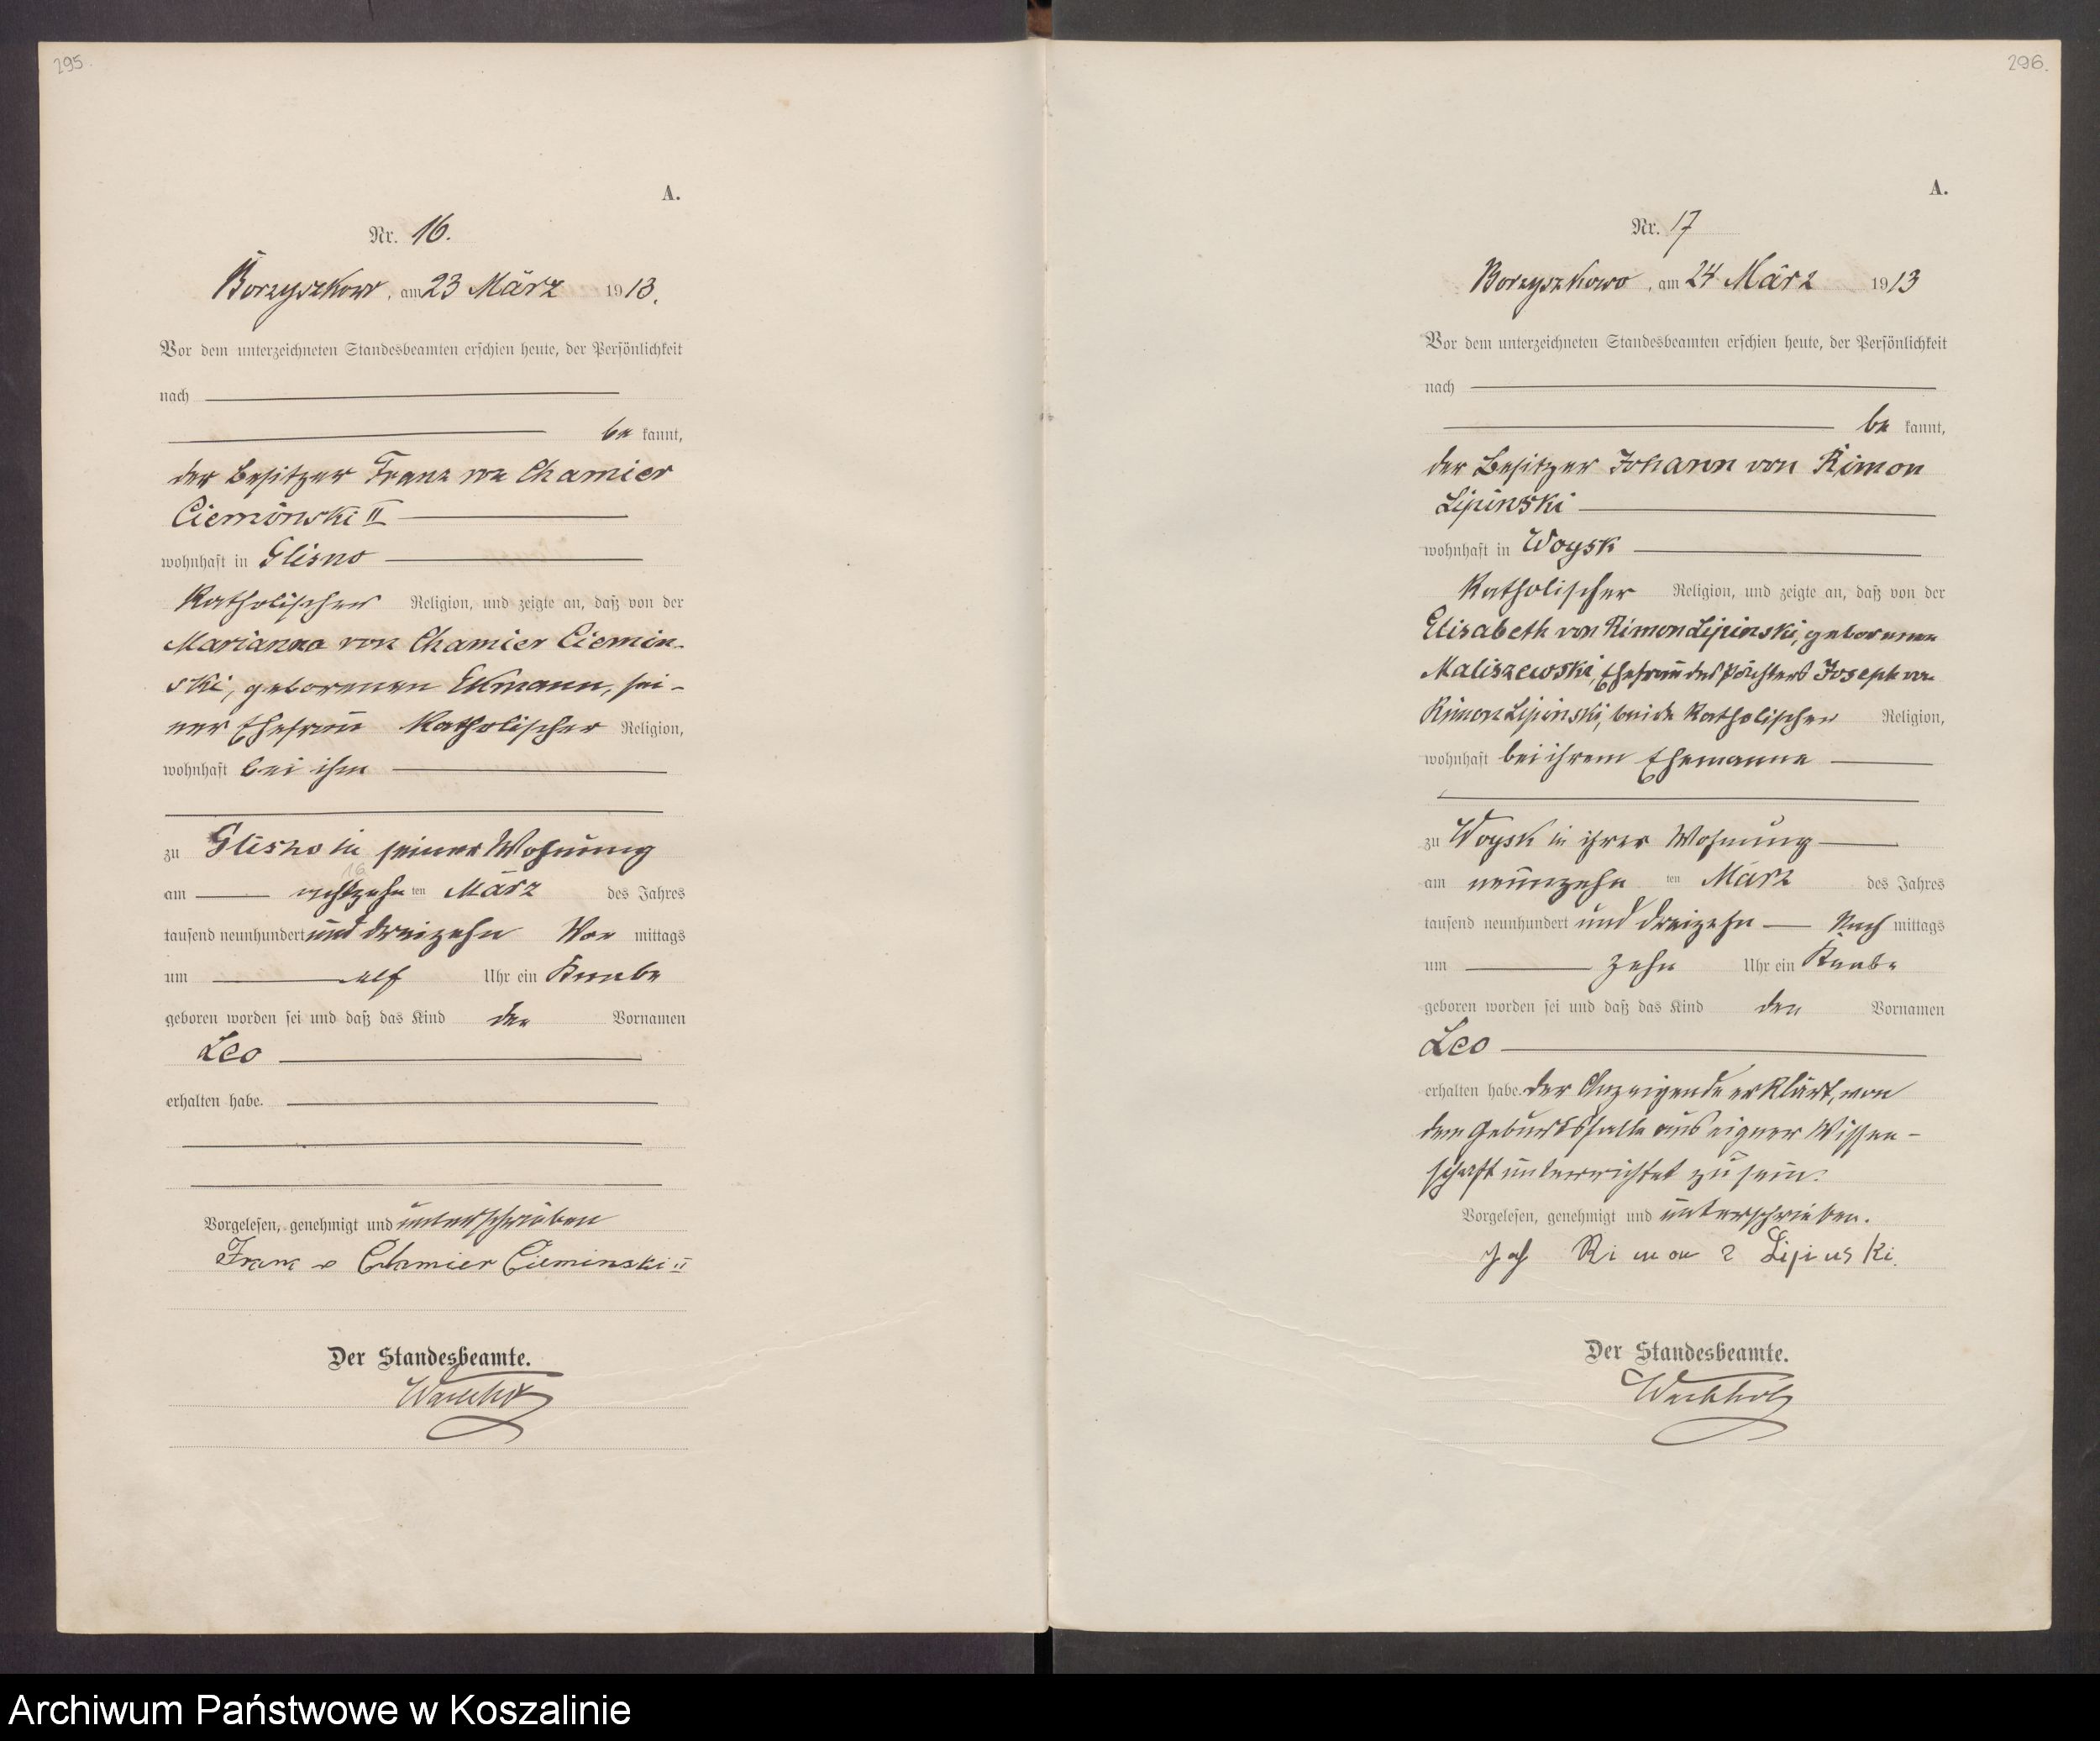 295.
A.
Nr. 16.
Borzyszkowo, am 23 März 1913.
Vor dem unterzeichneten Standesbeamten erschien heute, der Persönlichkeit
nach
be kannt,
der Besitzer Franz von Chamier
Cieminski II
wohnhaft in Glisno
katholischer Religion, und zeigte an, daß von der
Marianna von Chamier Ciemin-
ski, geborenen Ekmann, sei-
ner Ehefrau katholischer Religion,
wohnhaft bei ihm
zu Glisno in seiner Wohnung
am achtzehnten März des Jahres
tausend neunhundert und dreizehn Vor mittags
um elf Uhr ein Knabe
geboren worden sei und daß das Kind den Vornamen
Leo
erhalten habe.
Vorgelesen, genehmigt und unterschrieben
Franz v Chamier Cieminski II
Der Standesbeamte.
Wachholz
296.
A.
Nr. 17
Borzyszkowo, am 24 März 1913
Vor dem unterzeichneten Standesbeamten erschien heute, der Persönlichkeit
nach
be kannt,
der Besitzer Johann von Rimon
Lipinski
wohnhaft in Woysk
katholischer Religion, und zeigte an, daß von der
Elisabeth von Rimon Lipinski, geborenen
Maliszewski, Ehefrau des Pächters Joseph von
Rimon Lipinski, beide katholischer Religion,
wohnhaft bei ihrem Ehemanne
zu Woysk in ihrer Wohnung
am neunzehnten März des Jahres
tausend neunhundert und dreizehn Nach mittags
um zehn Uhr ein Knabe
geboren worden sei und daß das Kind den Vornamen
Leo
erhalten habe. Der Anzeigende erklärt, von
dem Geburtsfalle aus eigner Wissen-
schaft unterrichtet zu sein.
Vorgelesen, genehmigt und unterschrieben.
Joh Rimon Lipinski.
Der Standesbeamte.
Wachholz
Archiwum Państwowe w Koszalinie